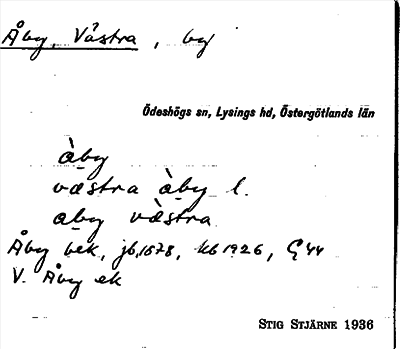 Åby, Västra, by
Ödeshögs sn, Lysings hd, Östergötlands län
àby
væstra àby l.
aby vàstra
Åby bek, jb 1678, kb 1926, G 44
V. Åby ek
STIG STJÄRNE 1936